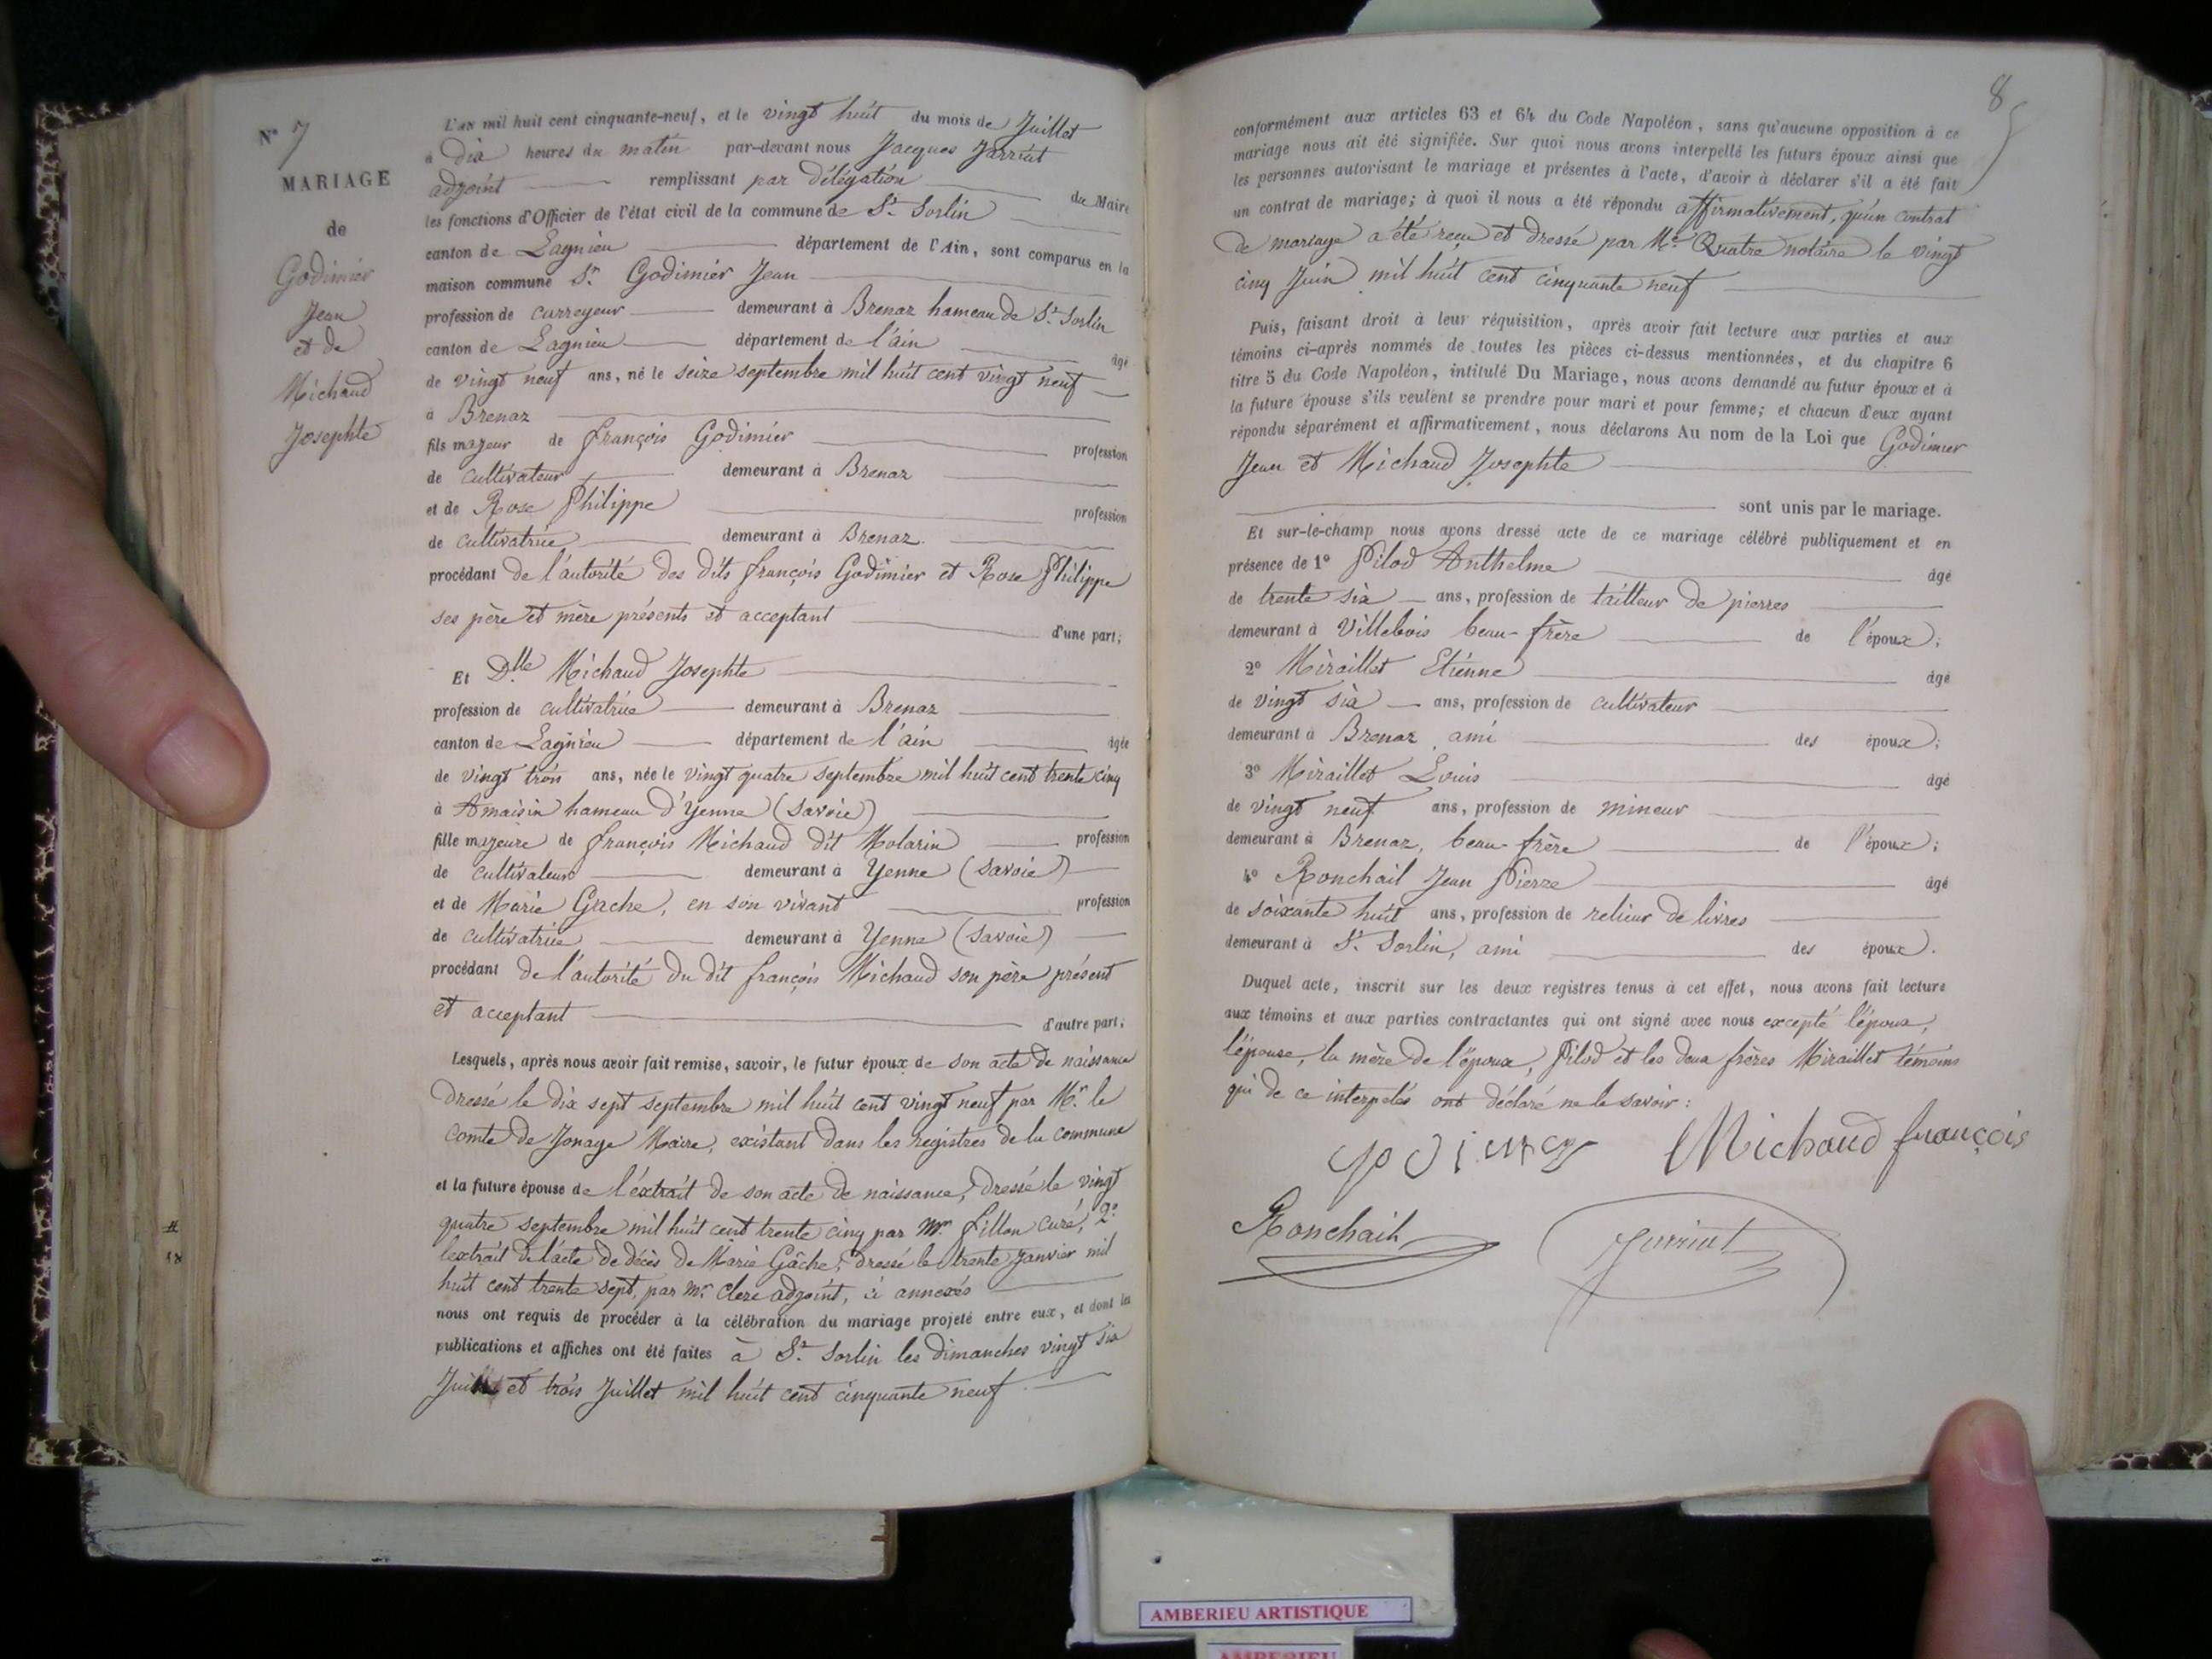 N° 7
MARIAGE
de
Godimier
Jean
et de
Michaud
Josephte
L'an mil huit cent cinquante-neuf, et le vingt huit du mois de Juillet
à dix heures du matin par-devant nous Jacques Jarriat
adjoint remplissant par délégation du Maire
les fonctions d'Officier de l'état civil de la commune de St. Sorlin
canton de Lagnieu département de l'Ain, sont comparus en la
maison commune Sr. Godimier Jean
profession de carreyeur demeurant à Brenaz hameau de St. Sorlin
canton de Lagnieu département de l'ain âgé
de vingt neuf ans, né le seize septembre mil huit cent vingt neuf
à Brenaz
fils majeur de françois Godimier profession
de cultivateur demeurant à Brenaz
et de Rose Philippe profession
de cultivatrice demeurant à Brenaz
procédant de l'autorité des dits françois Godimier et Rose Philippe
ses père et mère présents et acceptant d'une part;
Et Dlle Michaud Josephte
profession de cultivatrice demeurant à Brenaz
canton de Lagnieu département de l'ain âgée
de vingt trois ans, née le vingt quatre septembre mil huit cent trente cinq
à Amaisin hameau d'Yenne (Savoie)
fille majeure de françois Michaud dit Molarin profession
de cultivateur demeurant à Yenne (Savoie)
et de Marie Gache, en son vivant profession
de cultivatrice demeurant à Yenne (Savoie)
procédant de l'autorité du dit françois Michaud son père présent
et acceptant d'autre part;
Lesquels, après nous avoir fait remise, savoir, le futur époux de son acte de naissance
dressé le dix sept septembre mil huit cent vingt neuf par Mr. le
comte de Jonage Maire, existant dans les registres de la commune
et la future épouse de l'extrait de son acte de naissance, dressé le vingt
quatre septembre mil huit cent trente cinq par Mr. fillon curé, 2°
l'extrait de l'acte de décès de Marie Gâche, dressé le trente Janvier mil
huit cent trente sept, par Mr. Clerc adjoint, ci annexés
nous ont requis de procéder à la célébration du mariage projeté entre eux, et dont les
publications et affiches ont été faites à St. Sorlin les dimanches vingt six
et trois Juillet mil huit cent cinquante neuf
8
conformément aux articles 63 et 64 du Code Napoléon, sans qu'aucune opposition à ce
mariage nous ait été signifiée. Sur quoi nous avons interpellé les futurs époux ainsi que
les personnes autorisant le mariage et présentes à l'acte, d'avoir à déclarer s'il a été fait
un contrat de mariage; à quoi il nous a été répondu affirmativement, qu'un contrat
de mariage a été reçu et dressé par Me. Quatre notaire le vingt
cinq Juin mil huit cent cinquante neuf
Puis, faisant droit à leur réquisition, après avoir fait lecture aux parties et aux
témoins ci-après nommés de toutes les pièces ci-dessus mentionnées, et du chapitre 6
titre 5 du Code Napoléon, intitulé Du Mariage, nous avons demandé au futur époux et à
la future épouse s'ils veulent se prendre pour mari et pour femme; et chacun d'eux ayant
répondu séparément et affirmativement, nous déclarons Au nom de la Loi que Godimier
Jean et Michaud Josephte
sont unis par le mariage.
Et sur-le-champ nous avons dressé acte de ce mariage célébré publiquement et en
présence de 1° Pilod Anthelme âgé
de trente six ans, profession de tailleur de pierres
demeurant à Villebois beau-frère de l'époux;
2° Miraillet Etienne âgé
de vingt six ans, profession de cultivateur
demeurant à Brenaz ami des époux;
3° Miraillet Louis âgé
de vingt neuf ans, profession de mineur
demeurant à Brenaz, beau-frère de l'époux;
4° Ronchail Jean Pierre âgé
de soixante huit ans, profession de relieur de livres
demeurant à St. Sorlin, ami des époux.
Duquel acte, inscrit sur les deux registres tenus à cet effet, nous avons fait lecture
aux témoins et aux parties contractantes qui ont signé avec nous excepté l'époux,
l'épouse, la mère de l'époux, Pilod et les deux frères Miraillet témoins
qui de ce interpelés ont déclaré ne le savoir:
Michaud françois
Ronchail
Jarriat
AMBERIEU ARTISTIQUE
AMBERIEU